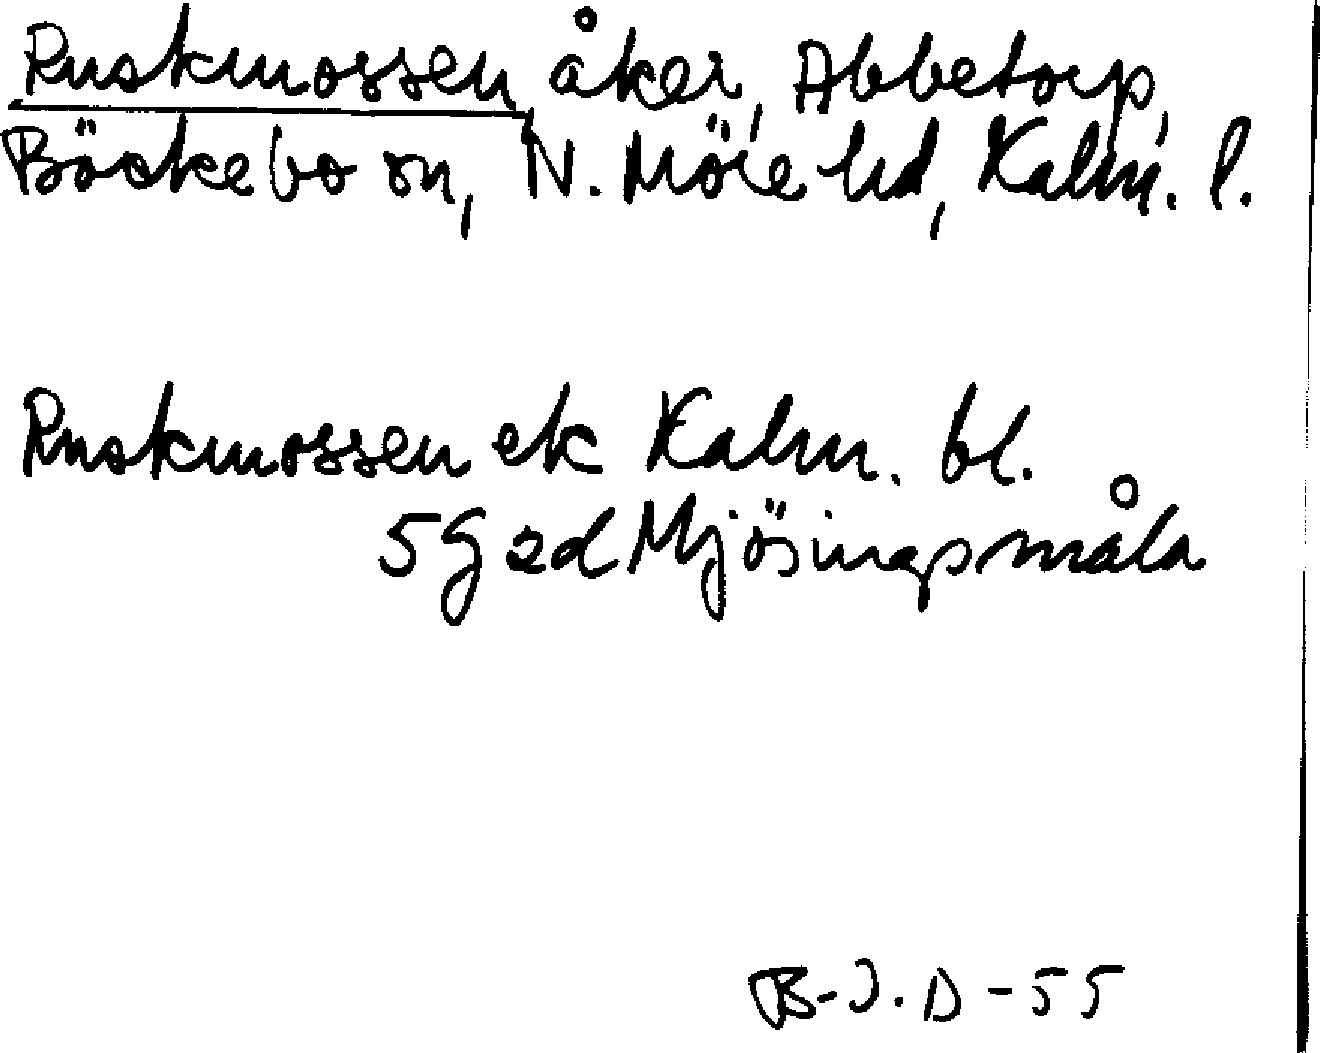 Ruskmossen, åker, Abbetorp,
Bäckebo sn, N. Möre hd, Kalm. l.
Ruskmossen ek Kalm. bl.
5g ad Mjösingsmåla
B-J.D-55